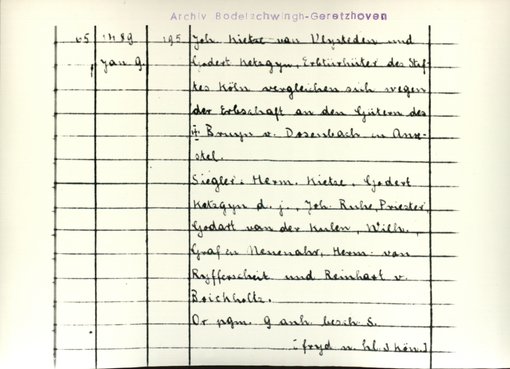 Archiv Bodelschwingh-Geretzhoven
65 1489 195 Joh. Kietze van Vlysteden und
Jan 9. Godert Ketzgyn, Erbtürhüter des Stif-
tes Köln vergleichen sich wegen
der Erbschaft an den Gütern des
‡ Bruyn v. Dosenbach in Anx-
stel.
Siegler: Herm. Kietze, Godert
Ketzgyn d. j., Joh. Ruhe, Priester,
Godart van der Kulen, Wilh.,
Graf zu Neuenahr, Herm. von
Ryfferscheit und Reinhart v.
Boichholtz.
Or pgm. 9 anh besch S.
[fryd n. hl. 3 Kön.]